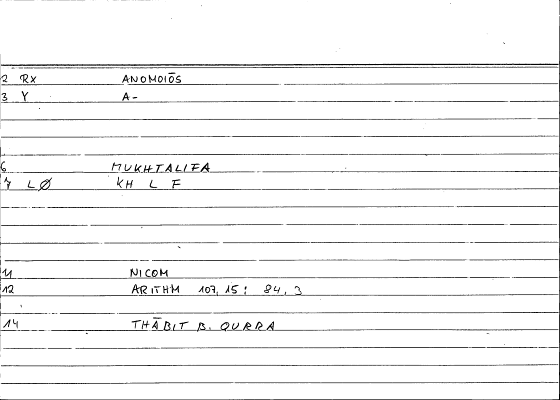 2 RX ANOMOIŌS
3 Y A-
6 MUKHTALIFA
7 LØ KH L F
11 NICOM
12 ARITHM 107, 15 : 84, 3
14 THĀBIT B. QURRA